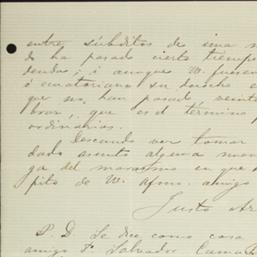 entre súbditos de una n
do ha pasado cierto tiempo
dendas; i aunque W. fuesen
ó ecuatoriano su derecho e
que no, han pasado veinte
brar, que es el término p
ordinarios.
Deseando ver tomar
dado asunto alguna mo
ga del marasmo en que
pito de W. afmo. amigo
Justo Ar
P. D. Se dice como cosa
amigo F. Salvador Cama